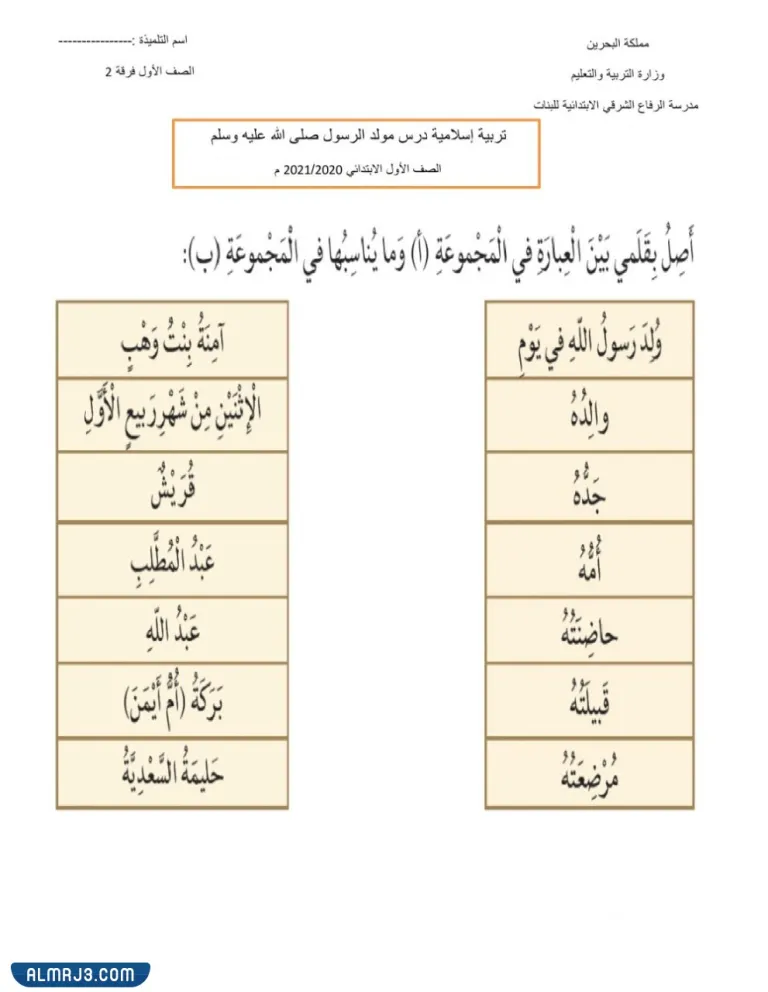 مملكة البحرين
اسم التلميذة :----------------
وزارة التربية والتعليم
الصف الأول فرقة 2
مدرسة الرفاع الشرقي الابتدائية للبنات
تربية إسلامية درس مولد الرسول صلى الله عليه وسلم
الصف الأول الابتدائي 2021/2020 م
أَصِلُ بِقَلَمي بَيْنَ الْعِبارَةِ في الْمَجْموعَةِ (أ) وَما يُناسِبُها في الْمَجْموعَةِ (ب):
وُلِدَ رَسولُ اللَّهِ في يَوْمِ
آمِنَةُ بِنْتُ وَهْبٍ
والِدُهُ
الْإِثْنَيْنِ مِنْ شَهْرِ رَبيعٍ الْأَوَّلِ
جَدُّهُ
قُرَيْشٌ
أُمُّهُ
عَبْدُ الْمُطَّلِبِ
حاضِنَتُهُ
عَبْدُ اللَّهِ
قَبيلَتُهُ
بَرَكَةُ (أُمُّ أَيْمَنَ)
مُرْضِعَتُهُ
حَليمَةُ السَّعْدِيَّةُ
ALMRJ3.COM